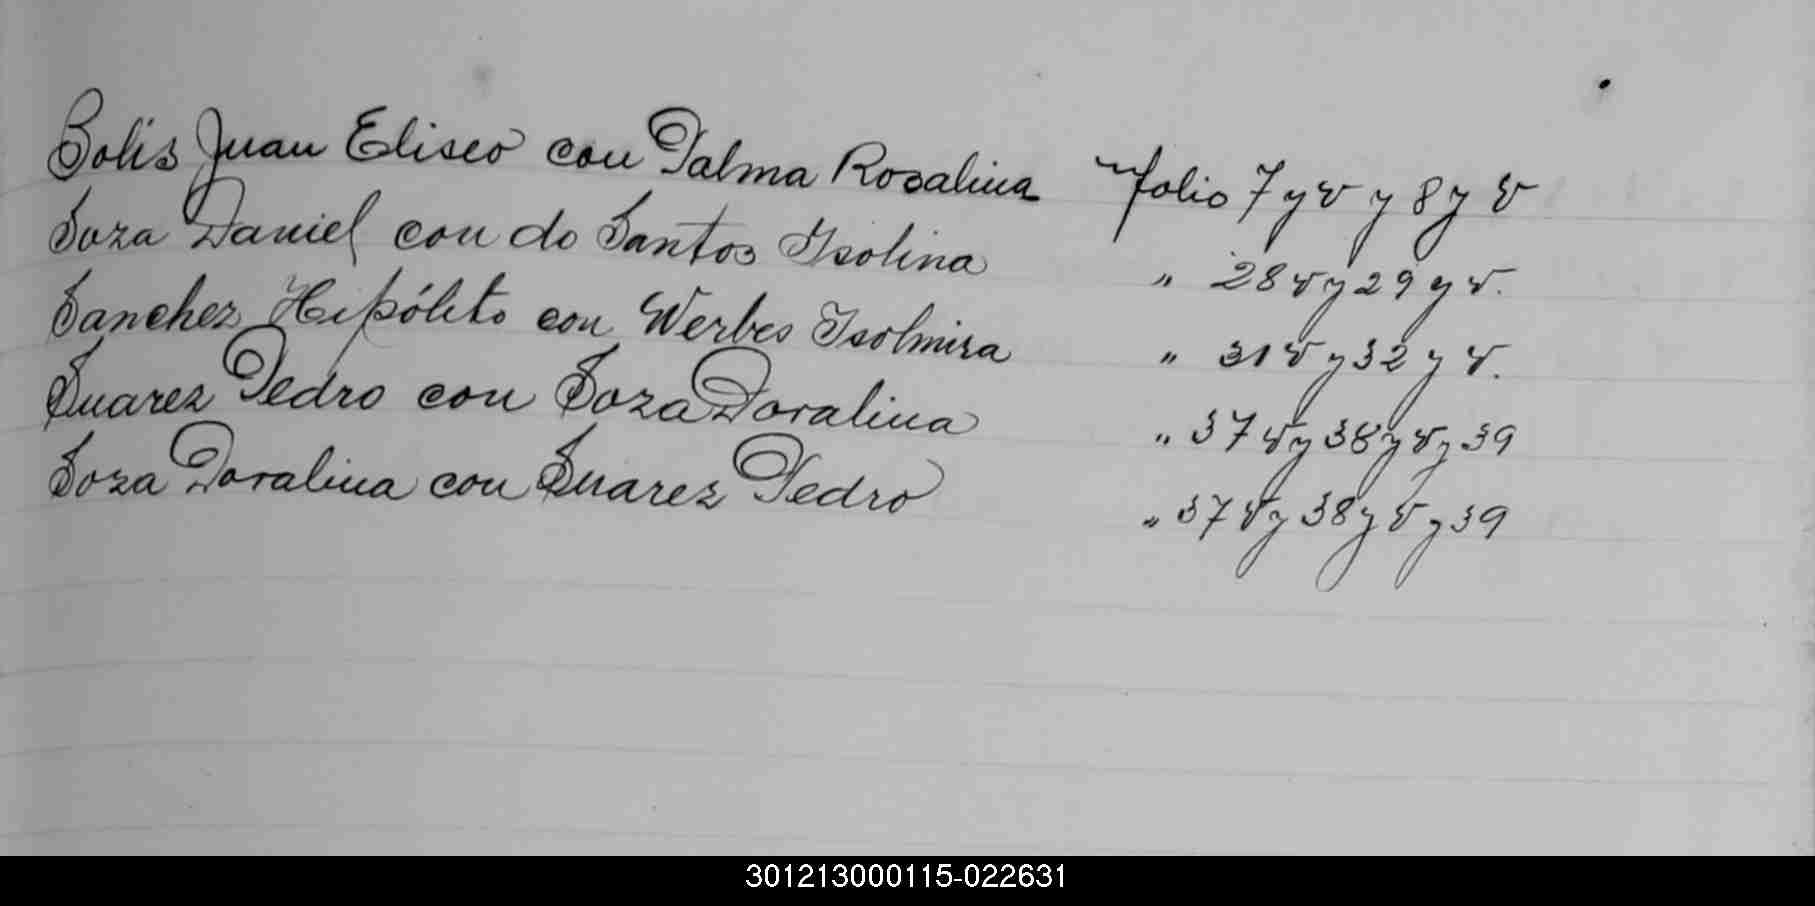 Solis Juan Eliseo con Palma Rosalina folio 7 y v y 8 y v
Soza Daniel con do Santos Isolina " 28 v y 29 y v.
Sanchez Hipólito con Werbes Isolmira " 31 v y 32 y v.
Suarez Pedro con Soza Doralina " 37 v y 38 y v y 39
Soza Doralina con Suarez Pedro " 37 v y 38 y v y 39
301213000115-022631